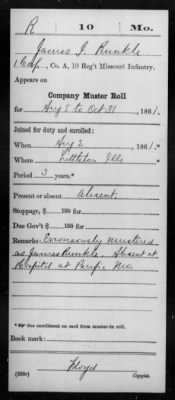 R | 10 | Mo.
James J. Runkle
Corp., Co. A, 10 Reg't Missouri Infantry.
Appears on
Company Muster Roll
for Aug 5 to Oct 31, 1861.
Joined for duty and enrolled:
When Aug 2, 1861.*
Where Littleton Ills
Period 3 years.*
Present or absent Absent
Stoppage, $ 100 for
Due Gov't $ 100 for
Remarks: Erroneously mustered
as James Runkle. Absent at
Hospital at Pacific Mo.
*See enrollment on card from muster-in roll.
Book mark:
(358r) Lloyd Copyist.